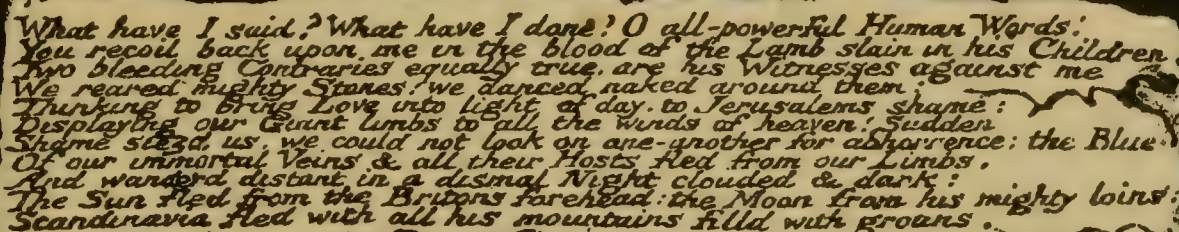 What have I said? What have I done! O all-powerful Human Words!
You recoil back upon me in the blood of the Lamb slain in his Children.
Two bleeding Contraries equally true, are his Witnesses against me
We reared mighty Stones: we danced naked around them:
Thinking to bring Love into light of day, to Jerusalems shame:
Displaying our Giant limbs to all the winds of heaven! Sudden
Shame siezd us, we could not look on one-another for abhorrence: the Blue
Of our immortal Veins & all their Hosts fled from our Limbs,
And wanderd distant in a dismal Night clouded & dark:
The Sun fled from the Britons forehead: the Moon from his mighty loins:
Scandinavia fled with all his mountains filld with groans.